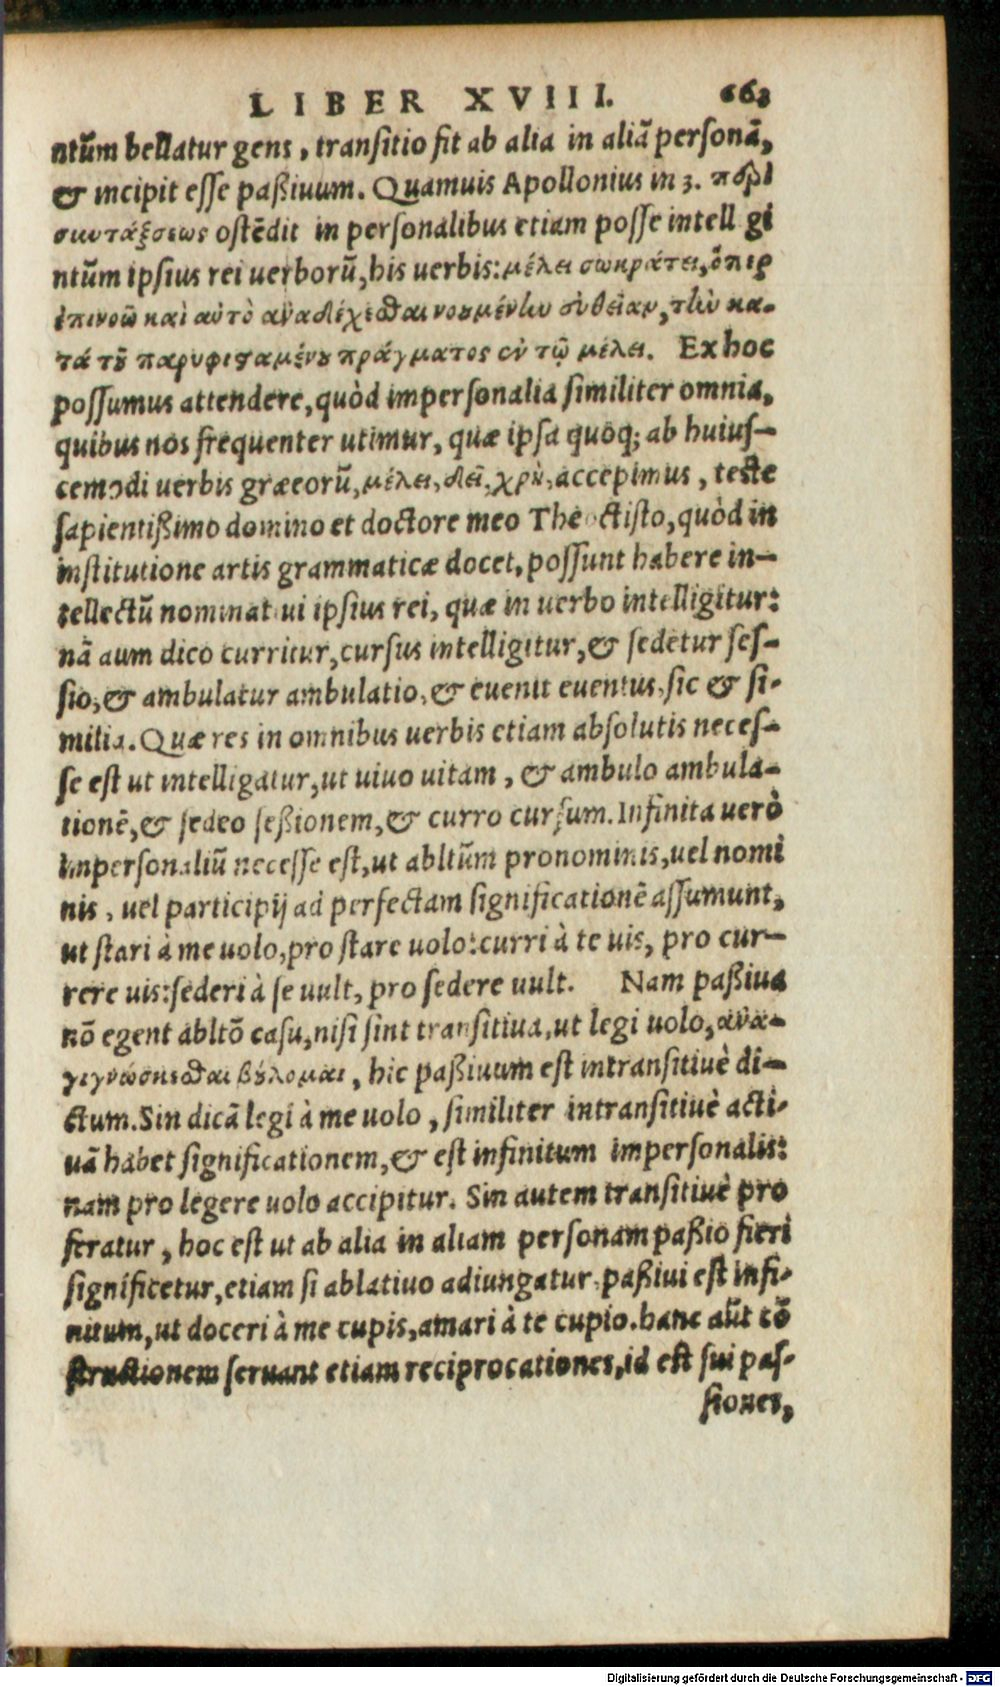 LIBER XVIII. 663
ntũm bellatur gens, transitio fit ab alia in aliã personã,
& incipit esse paßiuum. Quamuis Apollonius in 3. περὶ
συντάξεως ostẽdit in personalibus etiam posse intell gi
ntũm ipsius rei uerborũ, his uerbis: μέλει σωκράτει, ὅπερ
ἐπινοῶ καὶ αὐτὸ ἀναδέχεσθαι νουμένην εὐθεῖαν, τὴν κα-
τά τȣ͂ παρυφισαμένȣ πράγματος ἐν τῷ μέλει. Ex hoc
possumus attendere, quòd impersonalia similiter omnia,
quibus nos frequenter utimur, quæ ipsa quoq; ab huius-
cemodi uerbis græcorũ, μέλει, δεῖ, χρὴ, accepimus, teste
sapientißimo domino et doctore meo Theoctisto, quòd in
institutione artis grammaticæ docet, possunt habere in-
tellectũ nominat ui ipsius rei, quæ in uerbo intelligitur:
nã aum dico curritur, cursus intelligitur, & sedetur ses-
sio, & ambulatur ambulatio, & euenit euentus, sic & si-
milia. Quæ res in omnibus uerbis etiam absolutis neces-
se est ut intelligatur, ut uiuo uitam, & ambulo ambula-
tionẽ, & sedeo seßionem, & curro cursum. Infinita uerò
impersonaliũ necesse est, ut abltũm pronominis, uel nomi
nis, uel participij ad perfectam significationẽ assumunt,
ut stari à me uolo, pro stare uolo: curri à te uis, pro cur-
rere uis: sederi à se uult, pro sedere uult. Nam paßiua
nõ egent abltõ casu, nisi sint transitiua, ut legi uolo, ἀνα-
γιγνώσκεσθαι βȣ́λομαι, hic paßiuum est intransitiuè di-
ctum. Sin dicã legi à me uolo, similiter intransitiuè acti-
uã habet significationem, & est infinitum impersonalis:
nam pro legere uolo accipitur. Sin autem transitiuè pro
feratur, hoc est ut ab alia in aliam personam paßio fieri
significetur, etiam si ablatiuo adiungatur, paßiui est infi-
nitum, ut doceri à me cupis, amari à te cupio. hanc aũt cõ
structionem seruant etiam reciprocationes, id est sui pas-
siones,
Digitalisierung gefördert durch die Deutsche Forschungsgemeinschaft - DFG